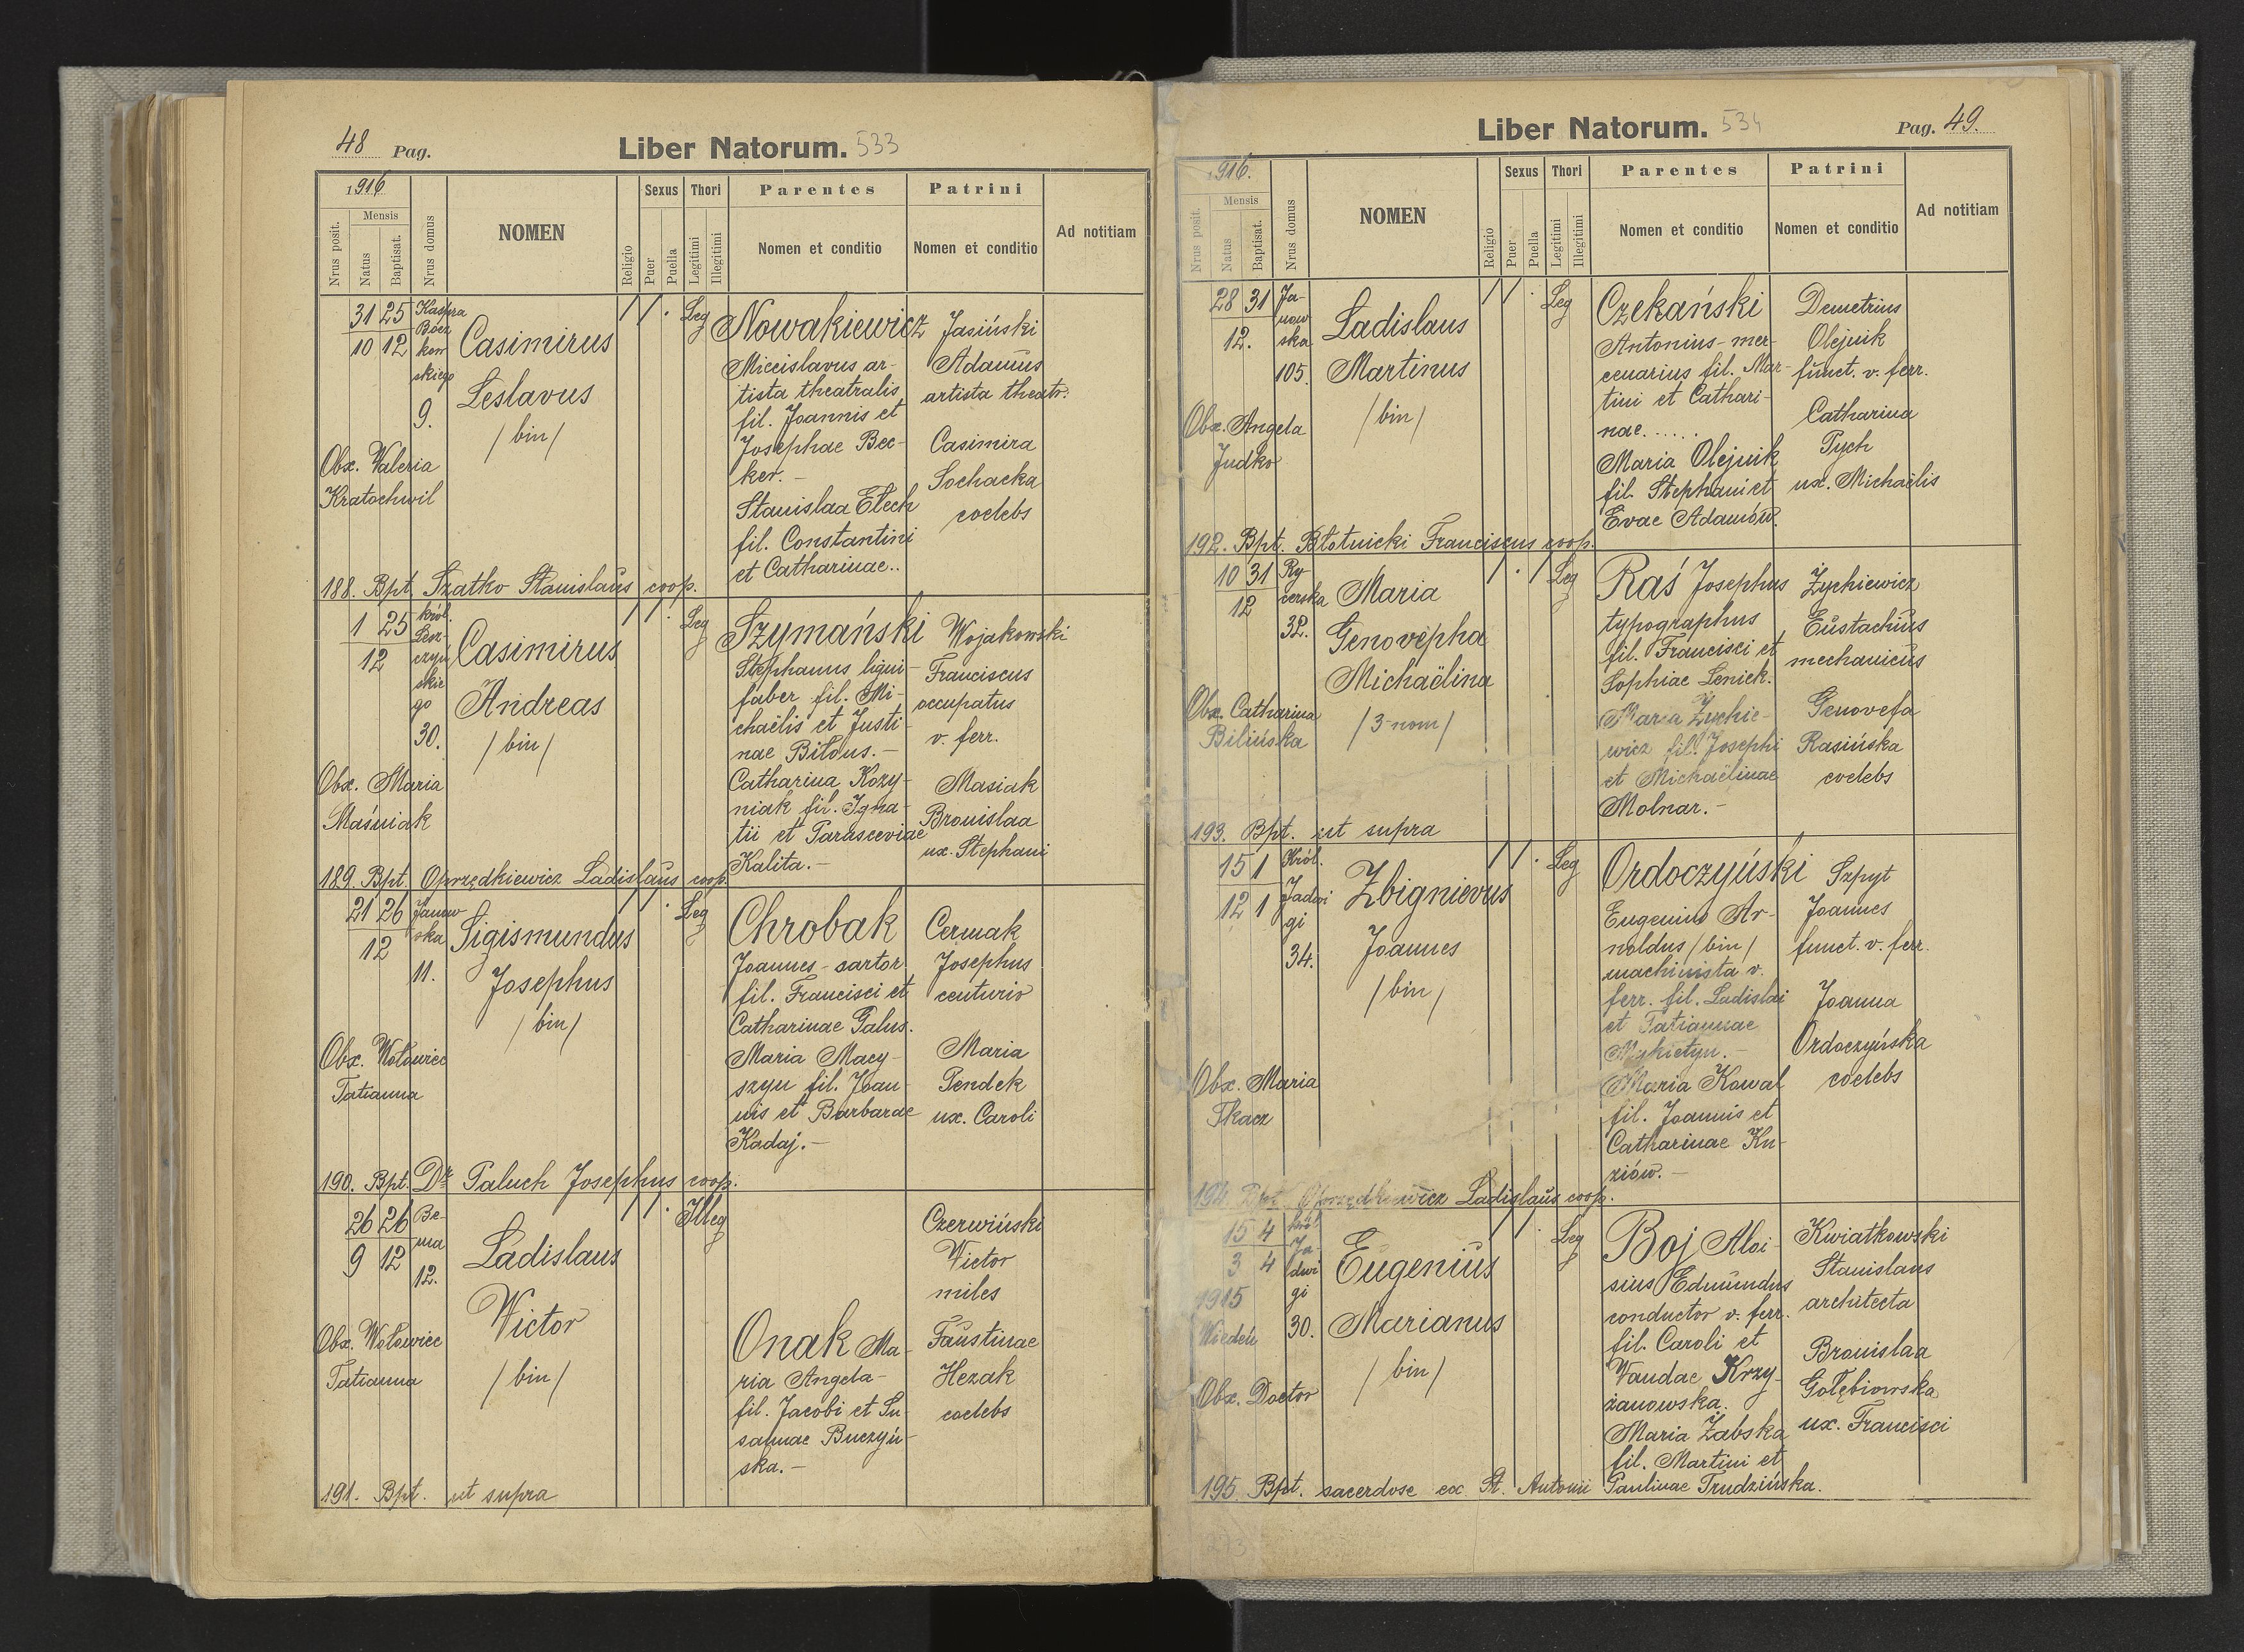 48 Pag.
Liber Natorum. 533
1916
Nrus posit.
Mensis
Natus
Baptisat.
Nrus domus
NOMEN
Religio
Sexus
Puer
Puella
Thori
Legitimi
Illegitimi
Parentes
Nomen et conditio
Patrini
Nomen et conditio
Ad notitiam
31 25
10 12
Kaspra
Bocz
kow
skiego
9.
Obx. Valeria
Kratochwil
Casimirus
Leslavus
/bin/
Leg
Nowakiewicz
Miecislavus ar-
tista theatralis
fil. Joannis et
Josephae Bec-
ker.-
Stanislaa Elech
fil. Constantini
et Catharinae..
Jasiński
Adamus
artista theatr.
Casimira
Sochacka
coelebs
188. Bpt. Szatko Stanislaus coop.
1 25
12
Król.
Lesz-
czyń
skie
go
30.
Obx. Maria
Maśniak
Casimirus
Andreas
/bin/
Leg
Szymański
Stephanus ligni-
faber fil. Mi-
chaëlis et Justi-
nae Bitous.-
Catharina Kozy-
niak fil. Igna-
tii et Parasceviae
Kalita.-
Wojakowski
Franciscus
occupatus
v. ferr.
Masiak
Bronislaa
ux. Stephani
189. Bpt. Oprzędkiewicz Ladislaus coop.
21 26
12
Janow
ska
11.
Obx. Wołowiec
Tatianna
Sigismundus
Josephus
/bin/
Leg
Chrobak
Joannes - sartor
fil. Francisci et
Catharinae Galus.
Maria Macy-
szyn fil. Joan-
nis et Barbarae
Kadaj.-
Cermak
Josephus
centurio
Maria
Pendek
ux. Caroli
190. Bpt. Dr Paluch Josephus coop.
26 26
9 12
Be-
ma
12.
Obx. Wołowiec
Tatianna
Ladislaus
Victor
/bin/
Illeg
Onak Ma-
ria Angela-
fil. Jacobi et Su-
sannae Buczyń-
ska.-
Czerwiński
Victor
miles
Faustinae
Hezak
coelebs
191. Bpt. ut supra
Liber Natorum. 534
Pag. 49.
1916.
Nrus posit.
Mensis
Natus
Baptisat.
Nrus domus
NOMEN
Religio
Sexus
Puer
Puella
Thori
Legitimi
Illegitimi
Parentes
Nomen et conditio
Patrini
Nomen et conditio
Ad notitiam
28 31
12.
Ja-
now
ska
105.
Obx. Angela
Judko
Ladislaus
Martinus
/bin/
Leg
Czekański
Antonius - mer-
cenarius fil. Mar-
tini et Cathari-
nae......
Maria Olejnik
fil. Stephani et
Evae Adamów.
Demetrius
Olejnik
funct. v. ferr.
Catharina
Pych
ux. Michaëlis
192. Bpt. Błotnicki Franciscus coop.
10 31
12
Ry-
cerska
32.
Obx. Catharina
Bilińska
Maria
Genovepha
Michaëlina
/3-nom/
Leg
Raś Josephus
typographus
fil. Francisci et
Sophiae Leniek.
Maria Żychie-
wicz fil. Josephi
et Michaëlinae
Molnar.-
Żychiewicz
Eustachius
mechanicus
Genovefa
Rasińska
coelebs
193. Bpt. ut supra
15 1
12 1
Król.
Jadwi
gi
34.
Obx. Maria
Tkacz
Zbignievus
Joannes
/bin/
Leg
Ordoczyński
Eugenius Ar-
noldus /bin/
machinista v.
ferr. fil. Ladislai
et Tatiannae
Mykietyn.-
Maria Kowal
fil. Joannis et
Catharinae Ku-
ziów.-
Szpyt
Joannes
funct. v. ferr.
Joanna
Ordoczyńska
coelebs
194. Bpt. Oprzędkiewicz Ladislaus coop.
15 4
3 4
1915
Wiedeń
Król
Ja-
dwi
gi
30.
Obx. Doctor
Eugenius
Marianus
/bin/
Leg
Boj Aloi-
sius Edmundus
conductor v. ferr.
fil. Caroli et
Vandae Krzy-
żanowska.
Maria Żabska
fil. Martini et
Paulinae Trudzińska.
Kwiatkowski
Stanislaus
architecta
Bronislaa
Gołębiowska
ux. Francisci
195. Bpt. sacerdose ex St. Antonii